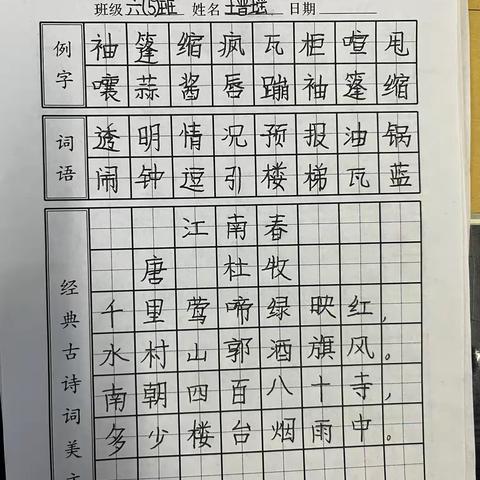 班级 六(5)班 姓名 日期
例字
袖篷缩疯瓦柜喧甩
嚷蒜酱唇蹦袖篷缩
词语
透明情况预报油锅
闹钟逗引楼梯瓦蓝
经典古诗词美文
江南春
唐 杜牧
千里莺啼绿映红，
水村山郭酒旗风。
南朝四百八十寺，
多少楼台烟雨中。